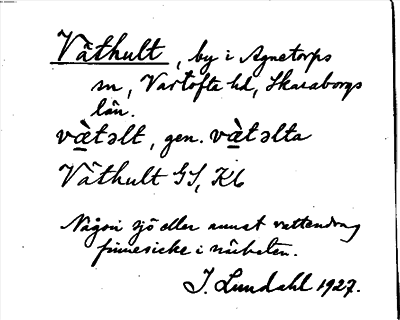 Väthult, by i Agnetorps
sn, Vartofta hd, Skaraborgs
län.
vä̀təlt, gen. vä̀təlta
Väthult GS, Kb
Någon sjö eller annat vattendrag
finnes icke i närheten.
I. Lundahl 1927.